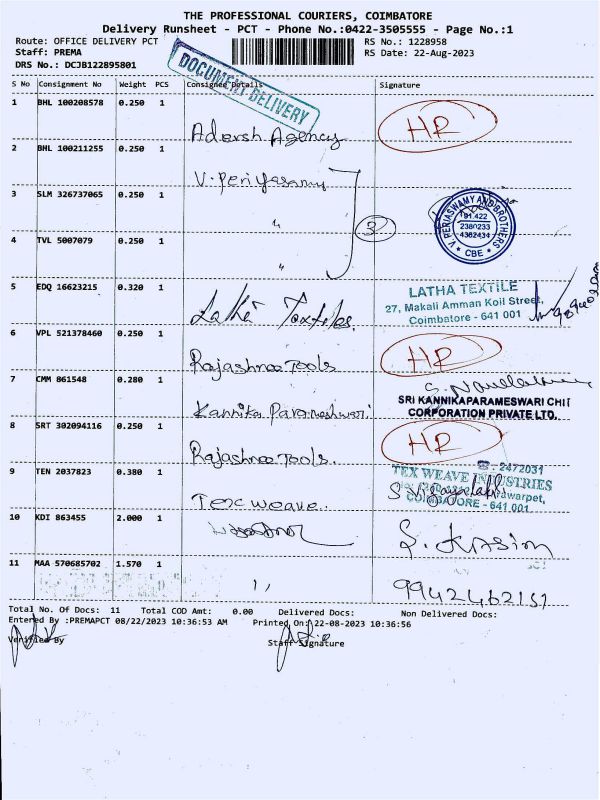 THE PROFESSIONAL COURIERS, COIMBATORE
Delivery Runsheet - PCT - Phone No.:0422-3505555 - Page No.:1
Route: OFFICE DELIVERY PCT RS No.: 1228958
Staff: PREMA RS Date: 22-Aug-2023
DRS No.: DCJB122895801
DOCUMENT DELIVERY
S No Consignment No Weight PCS Consignee Details Signature
1 BHL 100208578 0.250 1 Adersh Agency HR
2 BHL 100211255 0.250 1 V. Periyasamy
3 SLM 326737065 0.250 1 " 3
V. PERIASWAMY AND BROTHERS
2380233
4362434
CBE
4 TVL 5007079 0.250 1 "
5 EDQ 16623215 0.320 1 Latha Textiles.
LATHA TEXTILE
27, Makali Amman Koil Street,
Coimbatore - 641 001
6 VPL 521378460 0.250 1 Rajashree Tools HR
7 CMM 861548 0.280 1 Kannika Parameshwari
SRI KANNIKAPARAMESWARI CHIT
CORPORATION PRIVATE LTD.
8 SRT 302094116 0.250 1 Rajashree Tools. HR
9 TEN 2037823 0.380 1 Tex weave.
2472031
TEX WEAVE INDUSTRIES
COIMBATORE - 641 001
10 KDI 863455 2.000 1 S. Kasim
11 MAA 570685702 1.570 1 " 9942462151
Total No. Of Docs: 11 Total COD Amt: 0.00 Delivered Docs: Non Delivered Docs:
Entered By :PREMAPCT 08/22/2023 10:36:53 AM Printed On: 22-08-2023 10:36:56
Verified By Staff Signature